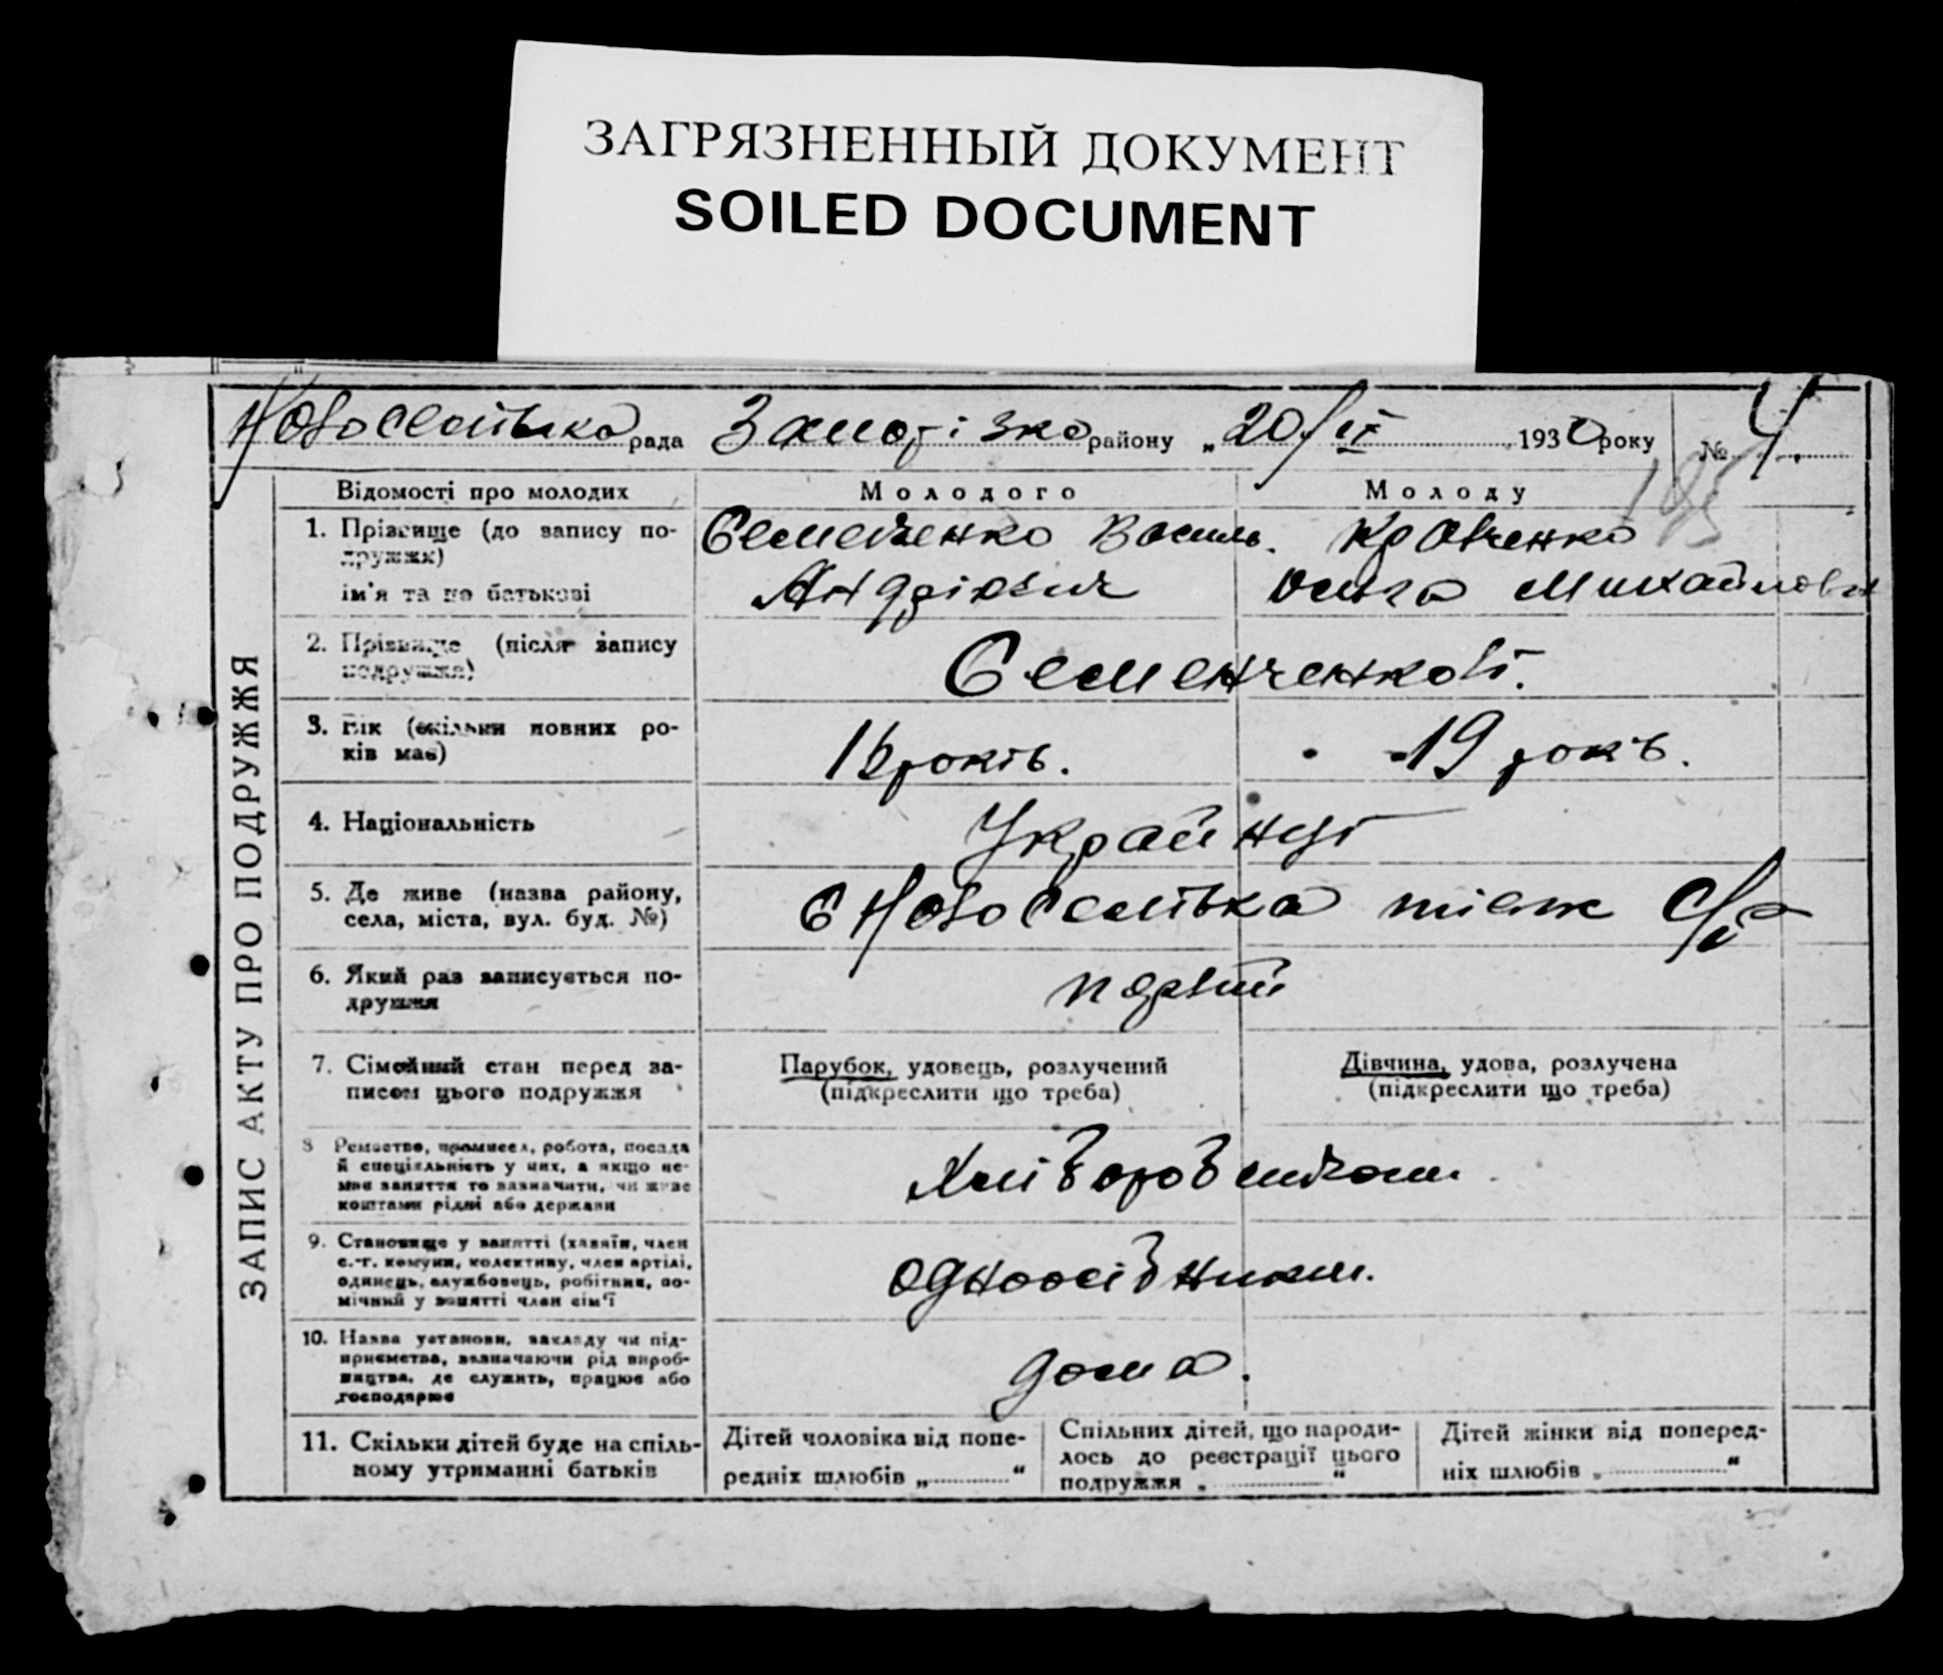 ЗАГРЯЗНЕННЫЙ ДОКУМЕНТ
SOILED DOCUMENT
Новоселівська рада Запорізко району „20/IX 1930 року № 4.
195
ЗАПИС АКТУ ПРО ПОДРУЖЖЯ
Відомості про молодих Молодого Молоду
1. Прізвище (до запису по-
дружжя)
ім'я та по батькові
Семенченко Василь.
Андрієвич
Кравченко
Ольга Михайловн
2. Прізвище (після запису
подружжя)
Семенченкові.
3. Вік (скільки повних ро-
ків має)
років.
19 років.
4. Національність
Українці
5. Де живе (назва району,
села, міста, вул. буд. №)
С Новоселівка тієж С/р
6. Який раз записується по-
дружжя
первий
7. Сімейний стан перед за-
писом цього подружжя
Парубок, удовець, розлучений
(підкреслити що треба)
Дівчина, удова, розлучена
(підкреслити що треба)
8 Ремество, промисел, робота, посада
й спеціяльність у них, а якщо не-
має заняття то зазначити, чи живе
коштами рідні або держави
Хліборобством.
9. Становище у занятті (хазяїн, член
с.-г. комуни, колективу, член артілі,
одинець, службовець, робітник, по-
мічний у занятті член сім'ї
одноосібники.
10. Назва установи, закладу чи під-
приємства, зазначаючи рід вироб-
ництва, де служить, працює або
господарює
дома.
11. Скільки дітей буде на спіль-
ному утриманні батьків
Дітей чоловіка від попе-
редніх шлюбів „ “
Спільних дітей, що народи-
лось до реєстрації цього
подружжя „ “
Дітей жінки від поперед-
ніх шлюбів „ “